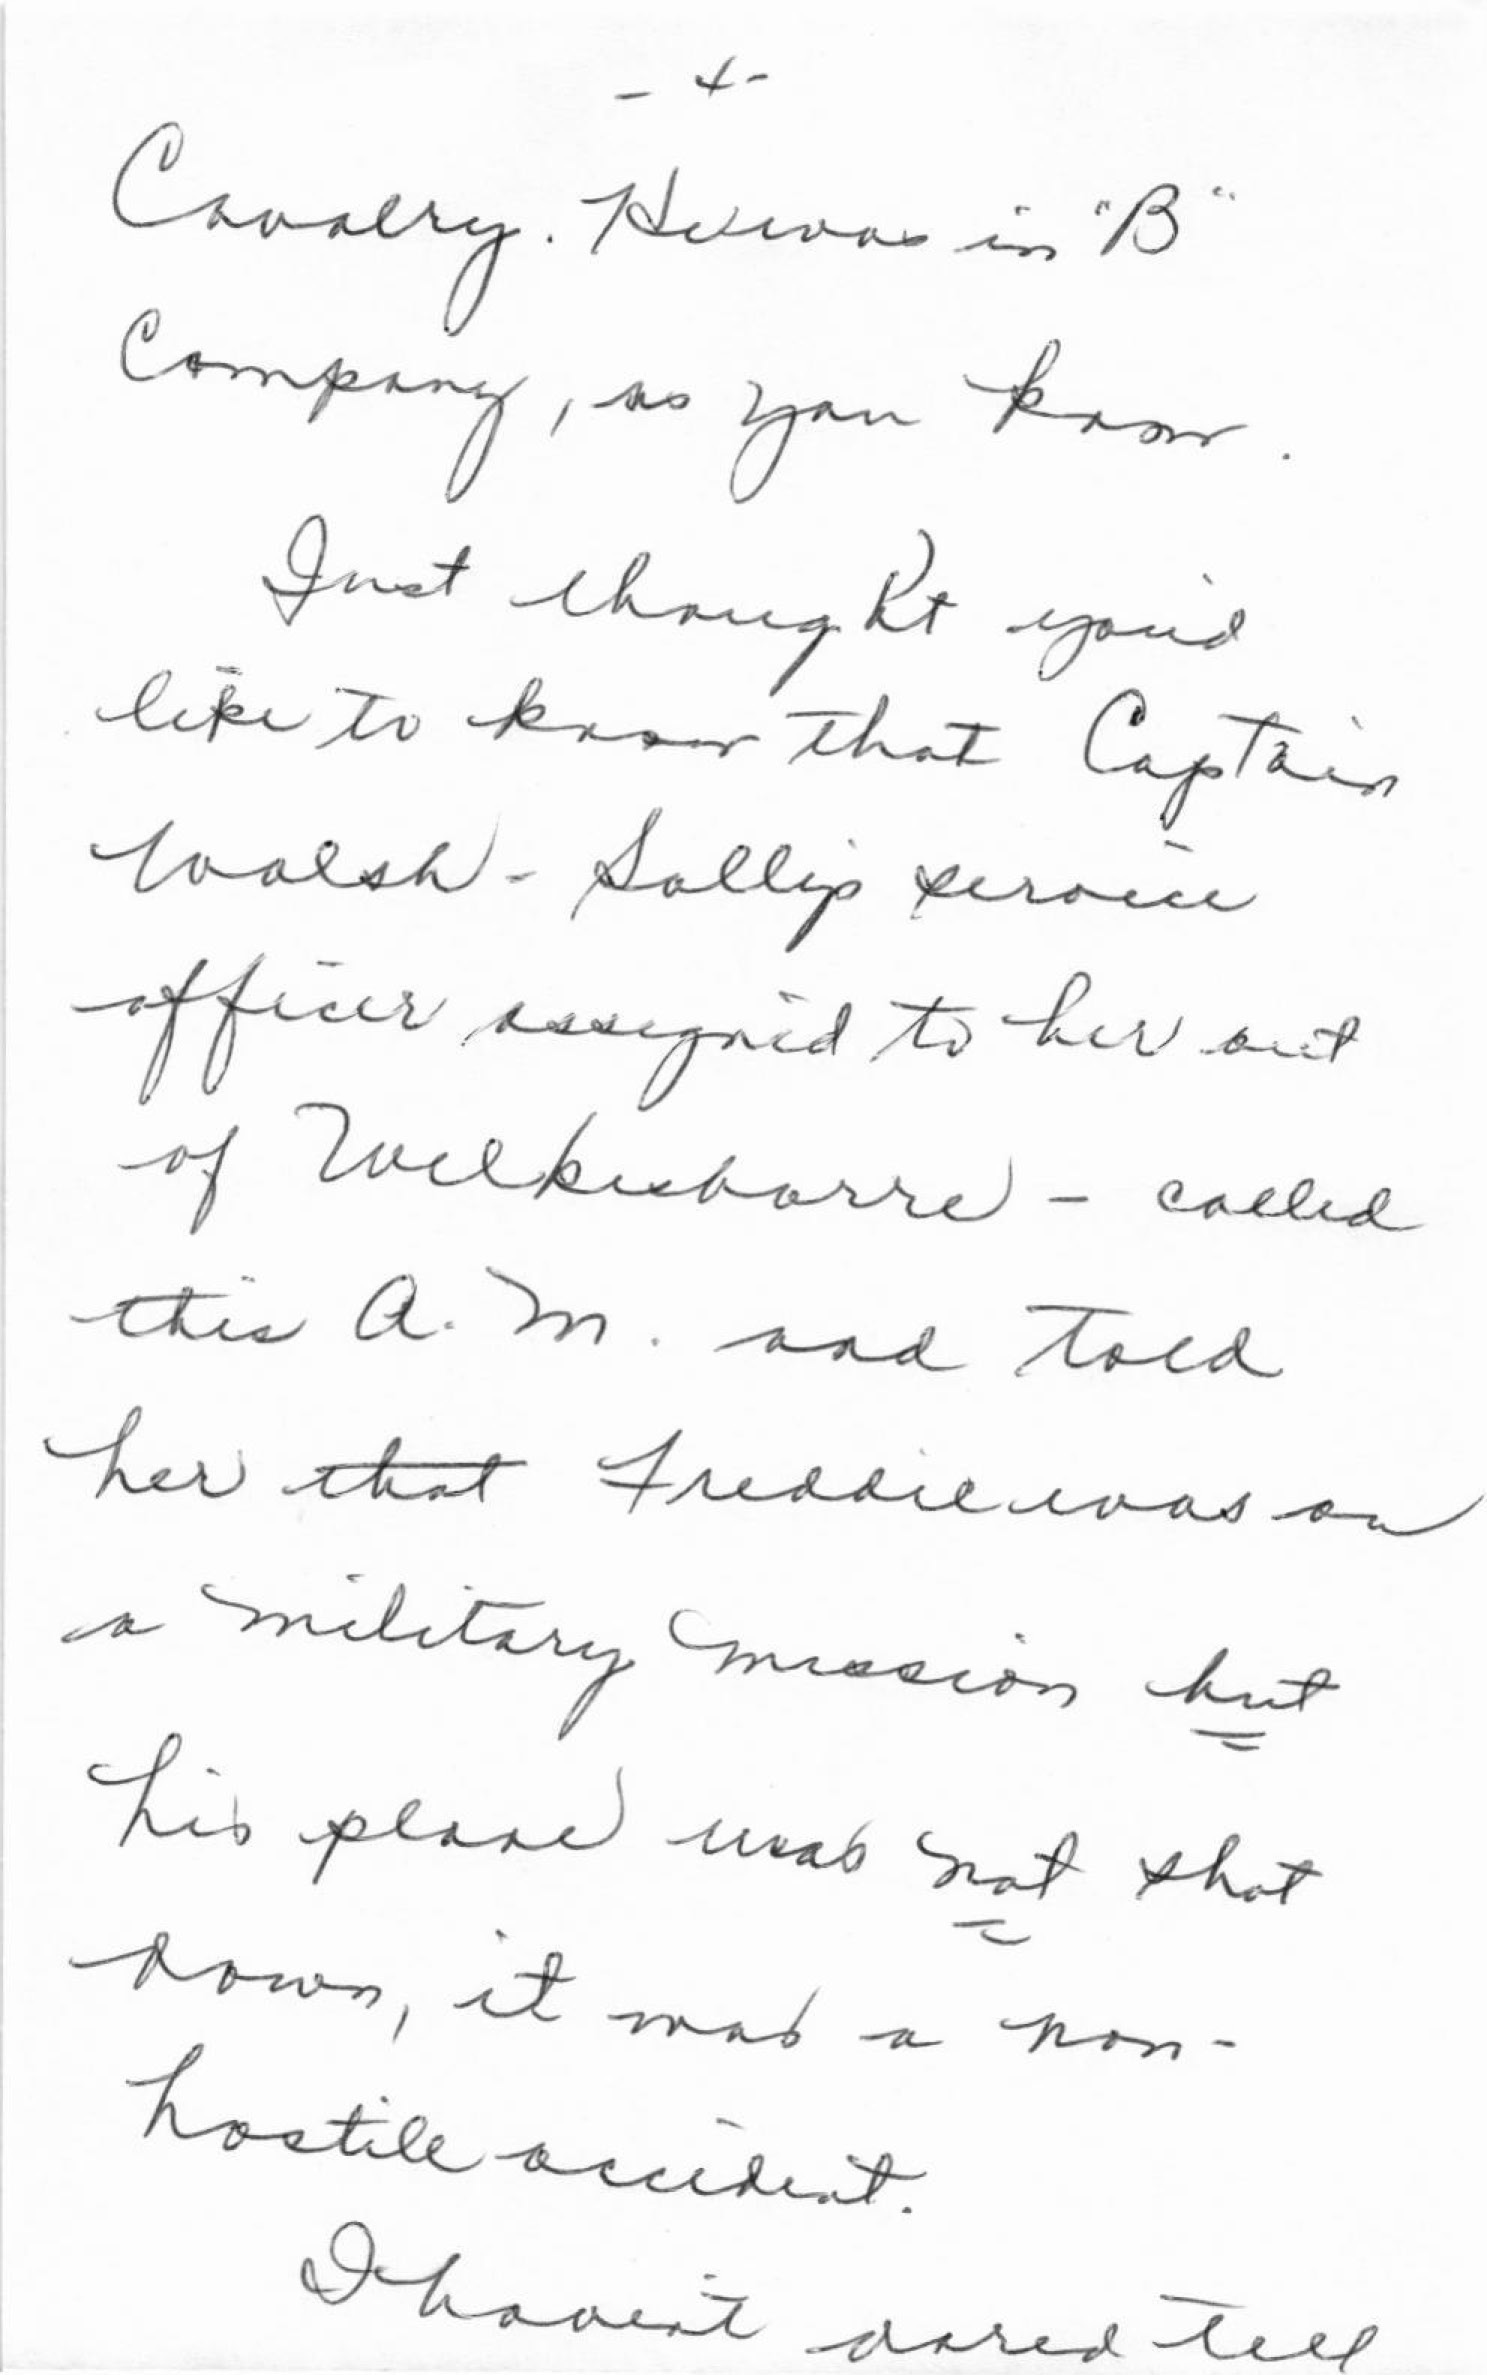 - 4 -
Cavalry. He was in "B"
Company, as you know.
Just thought you'd
like to know that Captain
Walsh - Sally's service
officer assigned to her out
of Wilkesbarre - called
this A.M. and told
her that Freddie was on
a military mission but
his plane was not shot
down, it was a non-
hostile accident.
I haven't dared tell